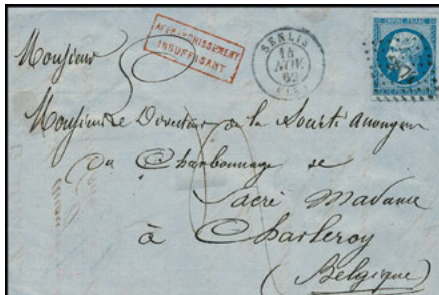 AFFRANCHISSEMENT
INSUFFISANT
SENLIS
15
NOV.
62
EMPIRE FRANC
Monsieur
Monsieur le Directeur de la Société anonyme
du Charbonnage de
Sacré Madame
à Charleroy
(Belgique)